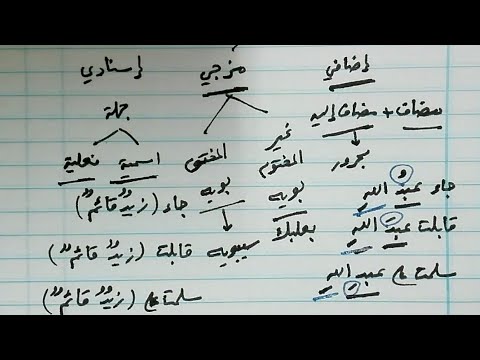 إضافي مزجي إسنادي
مضاف + مضاف إليه
مجرور
غير المختوم بويه
المختوم بويه
جملة
اسمية فعلية
بعلبك
سيبويه
جاء عبدُ اللهِ
قابلت عبدَ اللهِ
سلمت على عبدِ اللهِ
جاء (زيدٌ قائمٌ)
قابلت (زيدٌ قائمٌ)
سلمت على (زيدٌ قائمٌ)